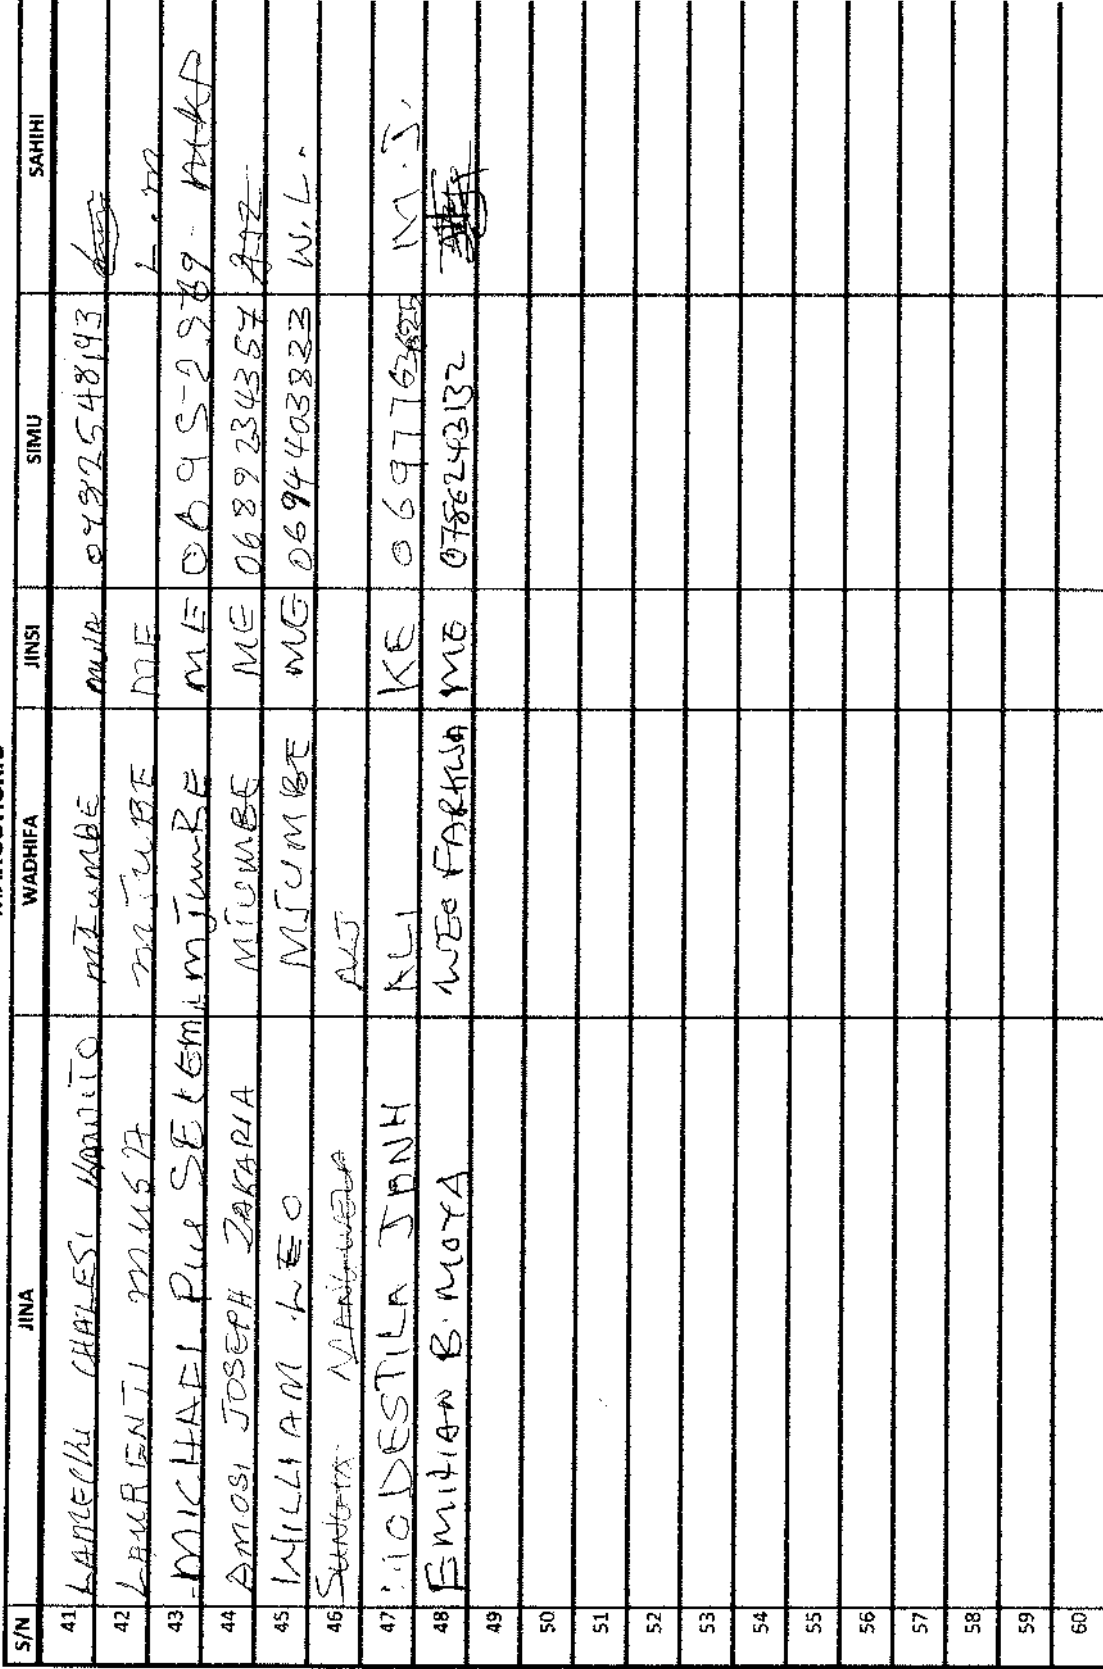 S/N JINA WADHIFA JINSI SIMU SAHIHI
41 CHALESI mJumbE 
42 LAURENTI MUSA mJUBE ME L.m
43 MICHAEL PIUS SELEMi mJumBE ME MKP
44 AMOSI JOSEPH ZAKARIA MJUMBE ME 0689234357 AJZ
45 WILLIAM LEO MJUMBE ME 0694403823 W.L.
46 SUNGITA
47 MODESTILA JONH KE M.J.
48 EMILIAN B. MOYA WEO FARKWA ME 0786243132
49
50
51
52
53
54
55
56
57
58
59
60